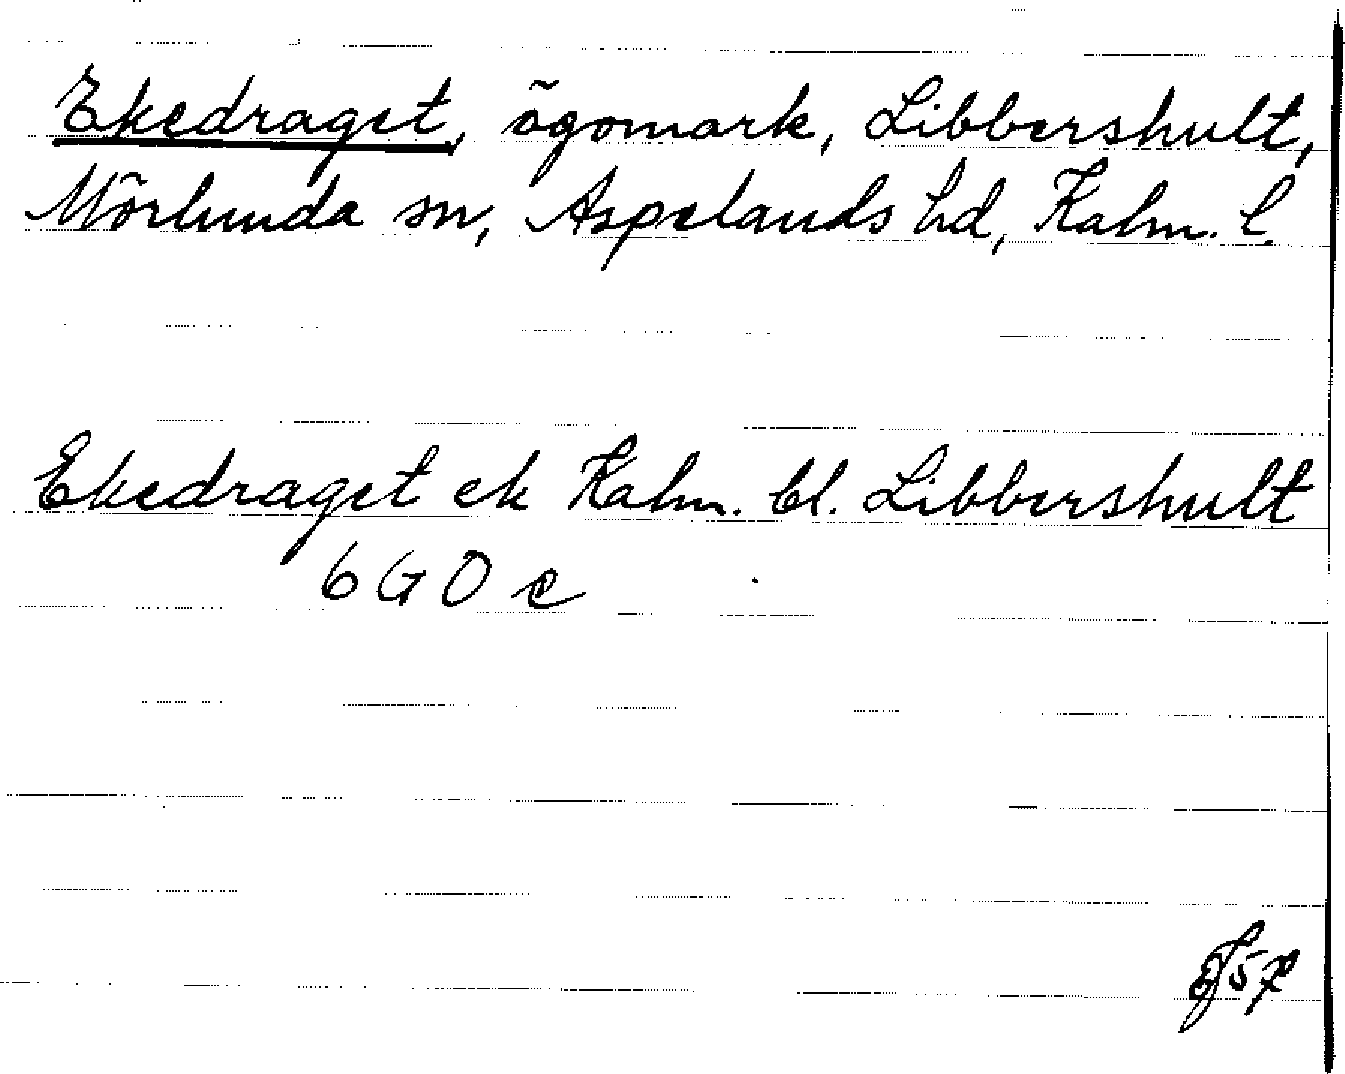 Ekedraget, ägomark, Libbershult,
Mörlunda sn, Aspelands hd, Kalm. l.
Ekedraget ek Kalm. bl. Libbershult
6 G 0 c